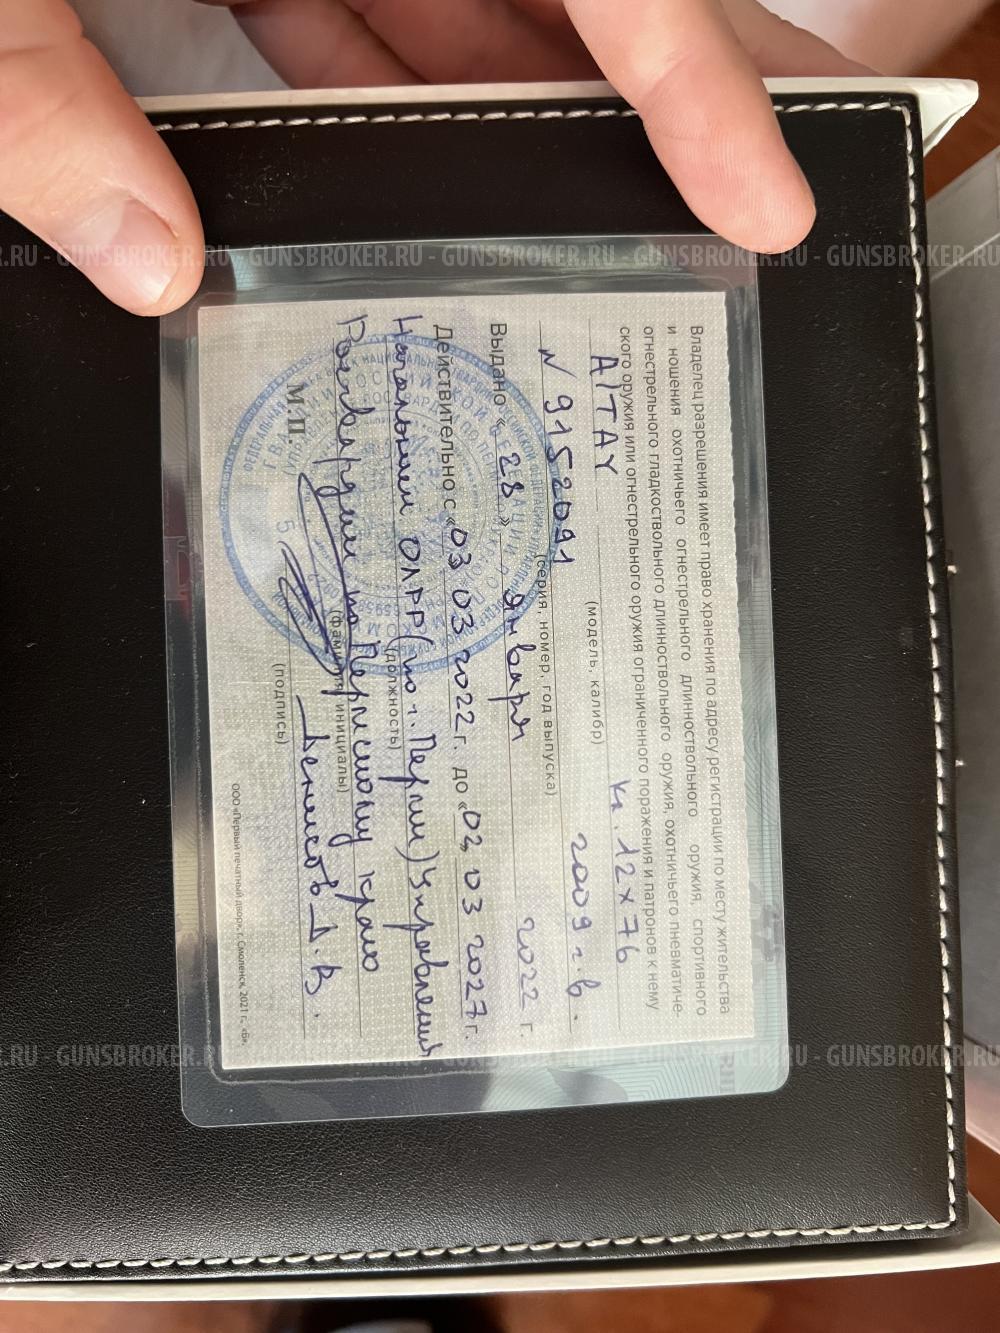 Владелец разрешения имеет право хранения по адресу регистрации по месту жительства
и ношения охотничьего огнестрельного длинноствольного оружия, спортивного
огнестрельного гладкоствольного длинноствольного оружия, охотничьего пневматиче-
ского оружия или огнестрельного оружия ограниченного поражения и патронов к нему
AlTAY кл. 12x76
(модель, калибр)
N 9152091 2009 г.в.
(серия, номер, год выпуска)
Выдано «28» января 2022 г.
Действительно с «03 03 2022 г. до «02, 03 2027 г.
Начальник ОЛРР (по г. Перми) Управления
(должность)
Росгвардии по Пермскому краю
(фамилия, инициалы)
М.П. Денисов Д.В.
(подпись)
ООО «Первый печатный двор», г. Смоленск, 2021 г., «Б».
R.RU - GUNSBROKER.RU - GUNSBROKER.RU - GUNSBROKER.RU - GUNSBROKER.RU
R.RU - GUNSBROKER.RU - GUNSBROKER.RU - GUNSBROKER.RU - GUNSBROKER.RU